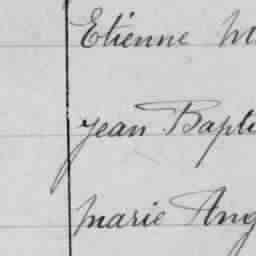 Etienne M
Jean Bapti
Marie Ang